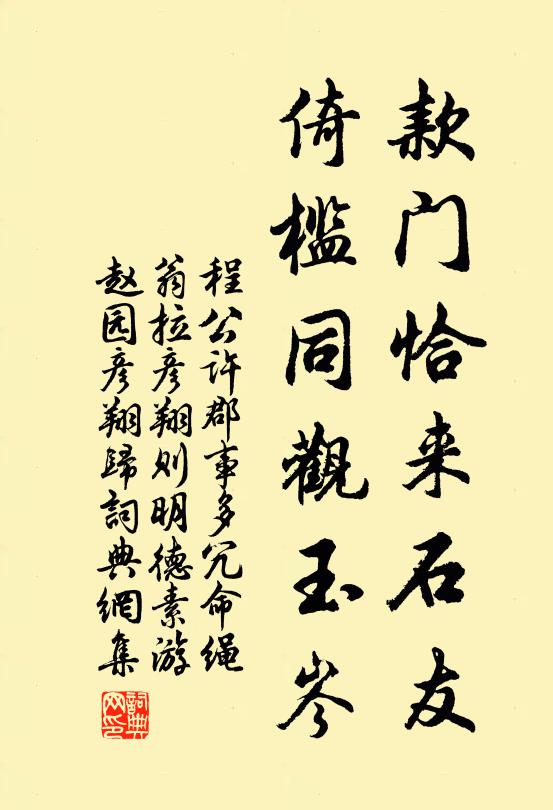 款门恰来石友
倚槛同觀玉岑
程公许郡事多冗命绳
翁拉彦翔则明德素游
赵园彦翔歸詞典網集
詞典网印